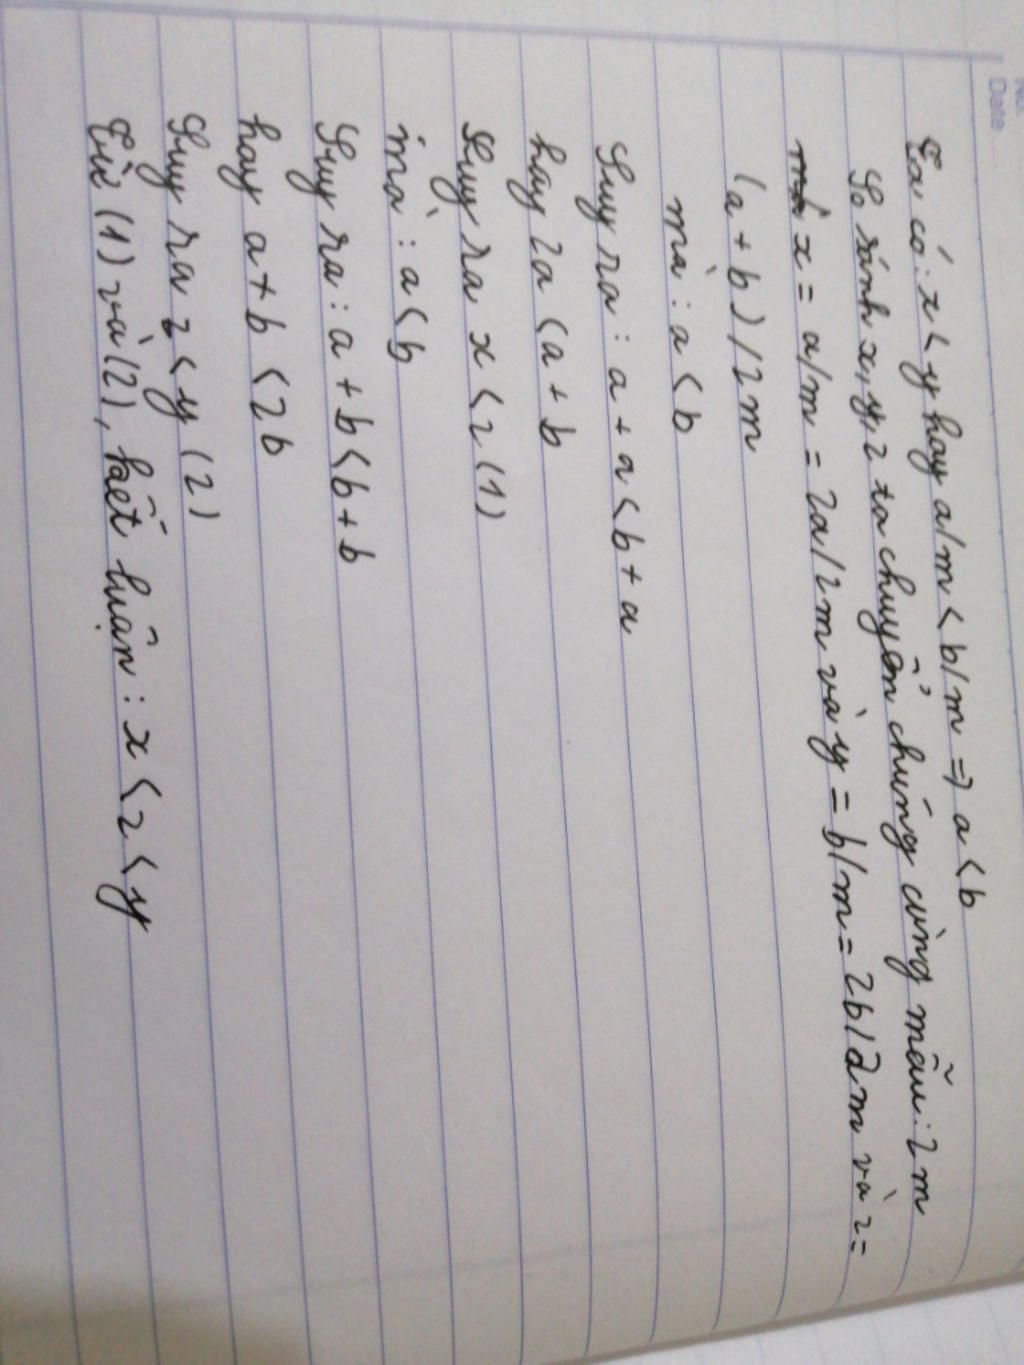 No.
Date
Ta có: x < y hay a/m < b/m => a < b
So sánh x, y, z ta chuyển chúng cùng mẫu: 2m
x = a/m = 2a/2m và y = b/m = 2b/2m và z =
(a + b) / 2m
mà : a < b
Suy ra : a + a < b + a
hay 2a < a + b
Suy ra x < z (1)
mà : a < b
Suy ra : a + b < b + b
hay a + b < 2b
Suy ra z < y (2)
Từ (1) và (2), kết luận : x < z < y